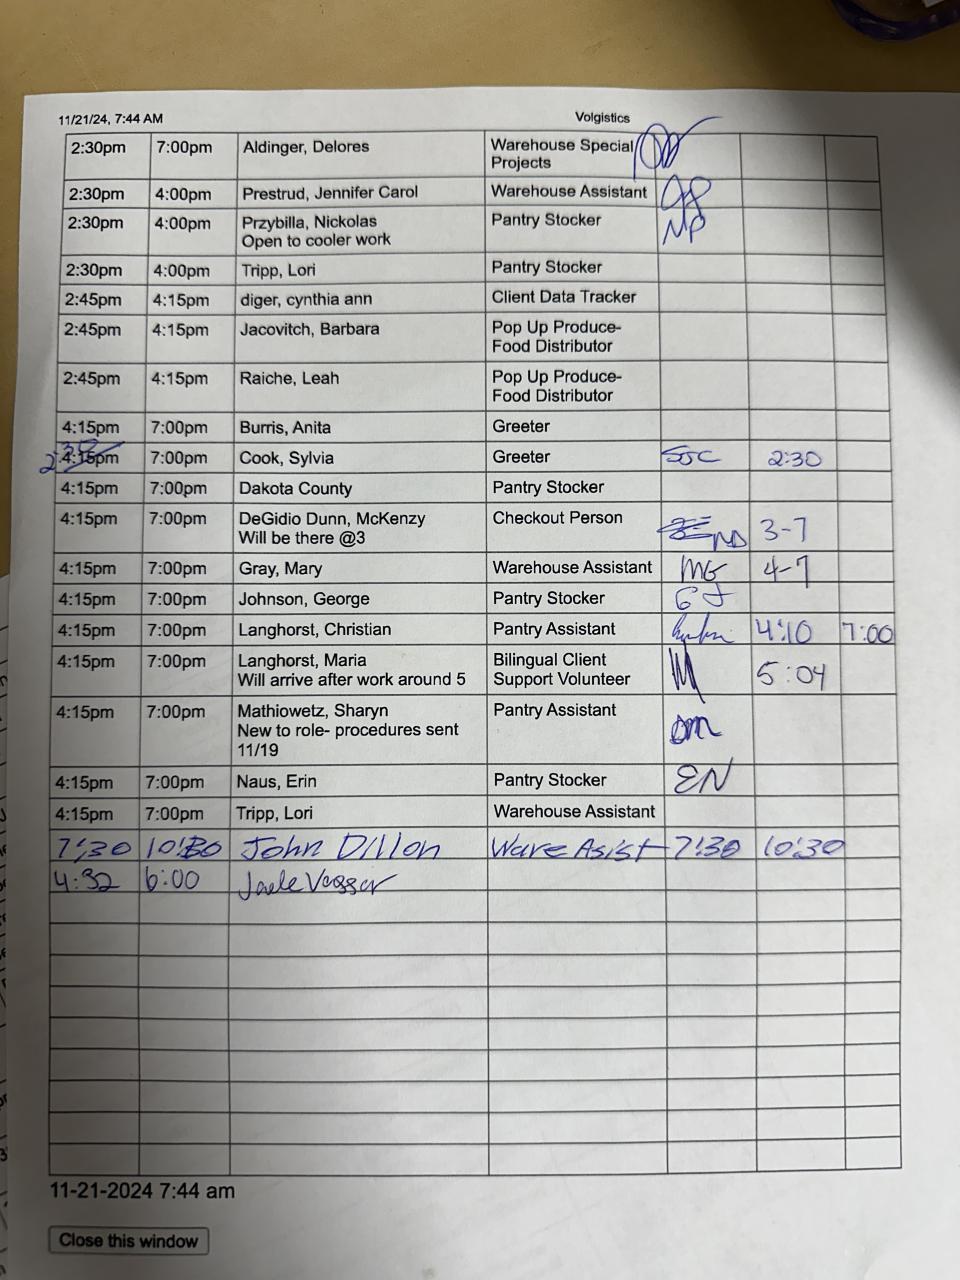 11/21/24, 7:44 AM Volgistics
2:30pm 7:00pm Aldinger, Delores Warehouse Special
Projects
2:30pm 4:00pm Prestrud, Jennifer Carol Warehouse Assistant JP
2:30pm 4:00pm Przybilla, Nickolas Pantry Stocker NP
Open to cooler work
2:30pm 4:00pm Tripp, Lori Pantry Stocker
2:45pm 4:15pm diger, cynthia ann Client Data Tracker
2:45pm 4:15pm Jacovitch, Barbara Pop Up Produce-
Food Distributor
2:45pm 4:15pm Raiche, Leah Pop Up Produce-
Food Distributor
4:15pm 7:00pm Burris, Anita Greeter
2:30 4:15pm 7:00pm Cook, Sylvia Greeter SJC 2:30
4:15pm 7:00pm Dakota County Pantry Stocker
4:15pm 7:00pm DeGidio Dunn, McKenzy Checkout Person MD 3-7
Will be there @3
4:15pm 7:00pm Gray, Mary Warehouse Assistant MG 4-7
4:15pm 7:00pm Johnson, George Pantry Stocker GJ
4:15pm 7:00pm Langhorst, Christian Pantry Assistant 4:10 7:00
4:15pm 7:00pm Langhorst, Maria Bilingual Client
Will arrive after work around 5 Support Volunteer 5:04
4:15pm 7:00pm Mathiowetz, Sharyn Pantry Assistant SM
New to role- procedures sent
11/19
4:15pm 7:00pm Naus, Erin Pantry Stocker EN
4:15pm 7:00pm Tripp, Lori Warehouse Assistant
7:30 10:30 John Dillon Ware Asist 7:30 10:30
4:32 6:00
11-21-2024 7:44 am
Close this window